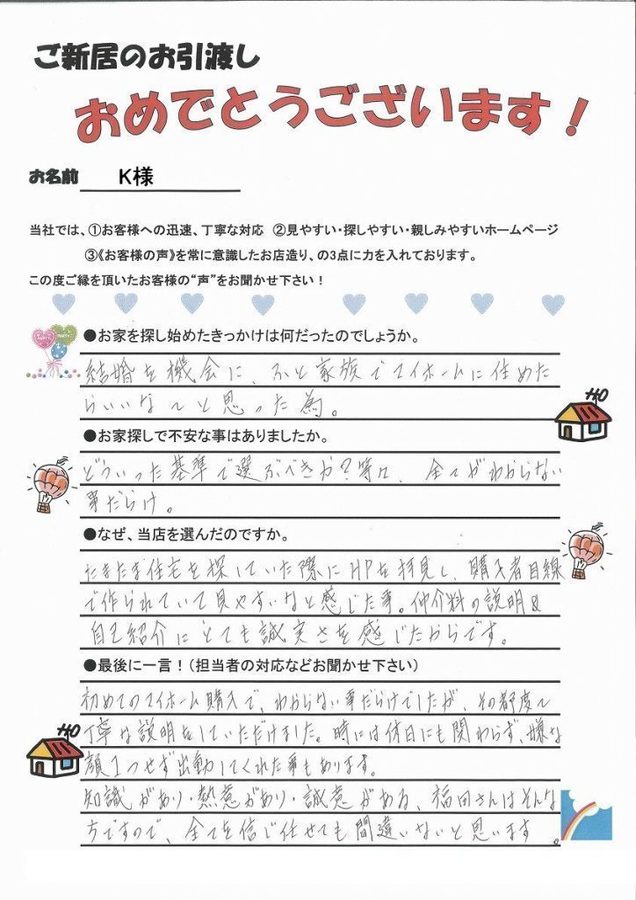 ご新居のお引渡し
おめでとうございます！
お名前 K様
当社では、①お客様への迅速、丁寧な対応 ②見やすい・探しやすい・親しみやすいホームページ
③《お客様の声》を常に意識したお店造り、の3点に力を入れております。
この度ご縁を頂いたお客様の“声”をお聞かせ下さい！
●お家を探し始めたきっかけは何だったのでしょうか。
結婚を機会に、ふと家族でマイホームに住めた
らいいな～と思った為。
●お家探しで不安な事はありましたか。
どういった基準で選ぶべきか？等々、全てがわからない
事だらけ。
●なぜ、当店を選んだのですか。
たまたま住宅を探していた際にHPを拝見し、購入者目線
で作られていて見やすいなと感じた事。仲介料の説明&
自己紹介にとても誠実さを感じたからです。
●最後に一言！（担当者の対応などお聞かせ下さい）
初めてのマイホーム購入で、わからない事だらけでしたが、その都度～
丁寧な説明をしていただけました。時には休日にも関わらず、嫌な
顔1つせず出動してくれた事もあります。
知識があり・熱意があり・誠意がある、福田さんはそんな
方ですので、全てを信じ任せても間違いないと思います。